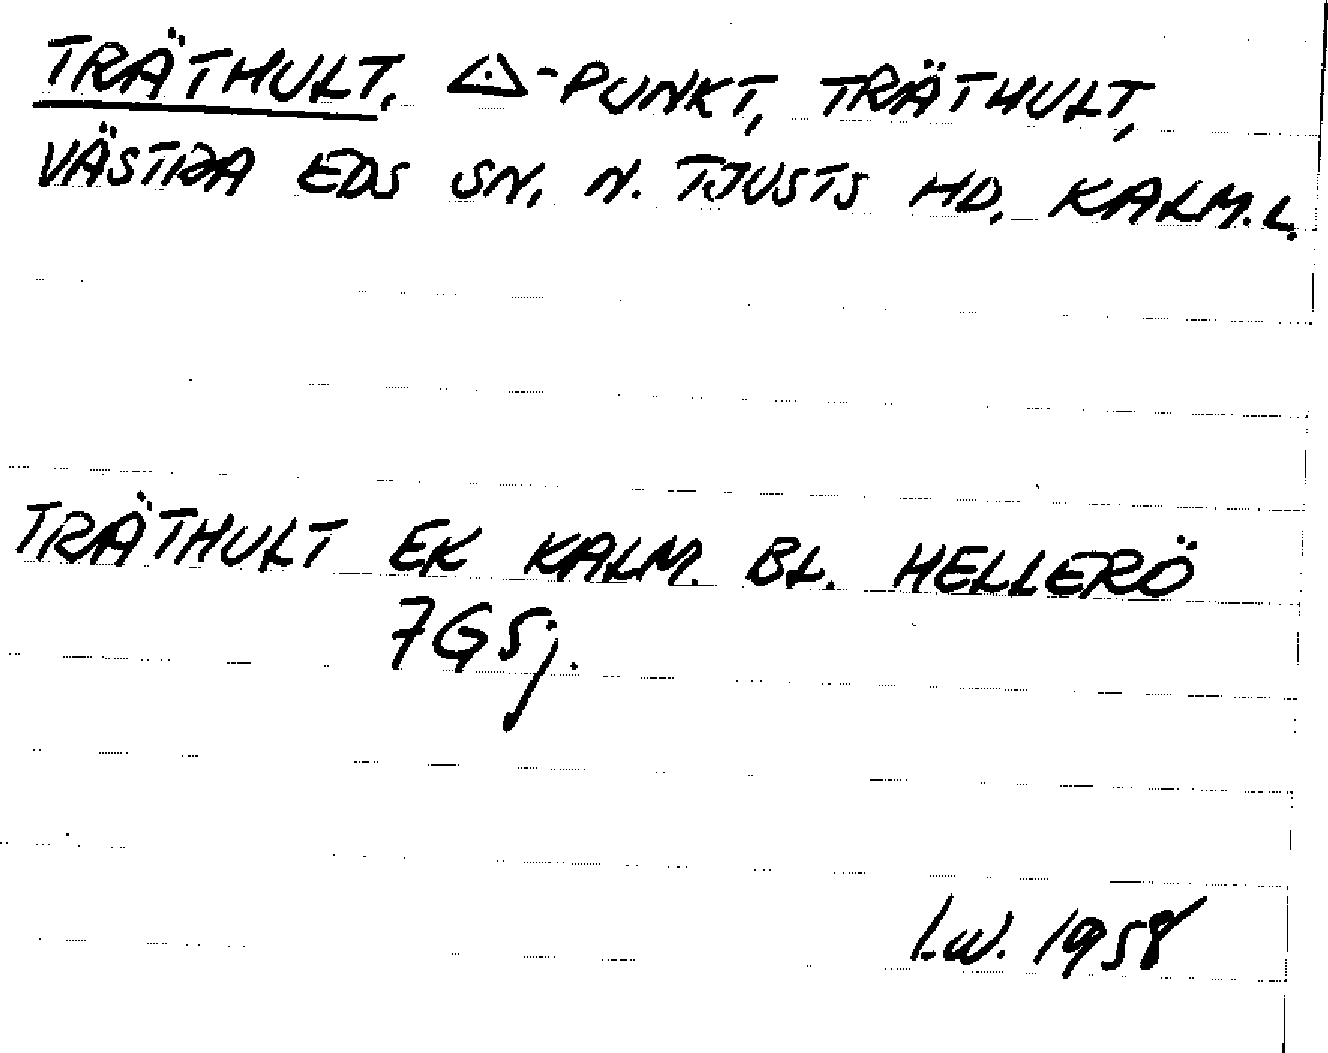 TRÄTHULT. △-PUNKT, TRÄTHULT,
VÄSTRA EDS SN, N. TJUSTS HD, KALM.L.
TRÄTHULT EK KALM. BL. HELLERÖ
7G5j.
I.W. 1958